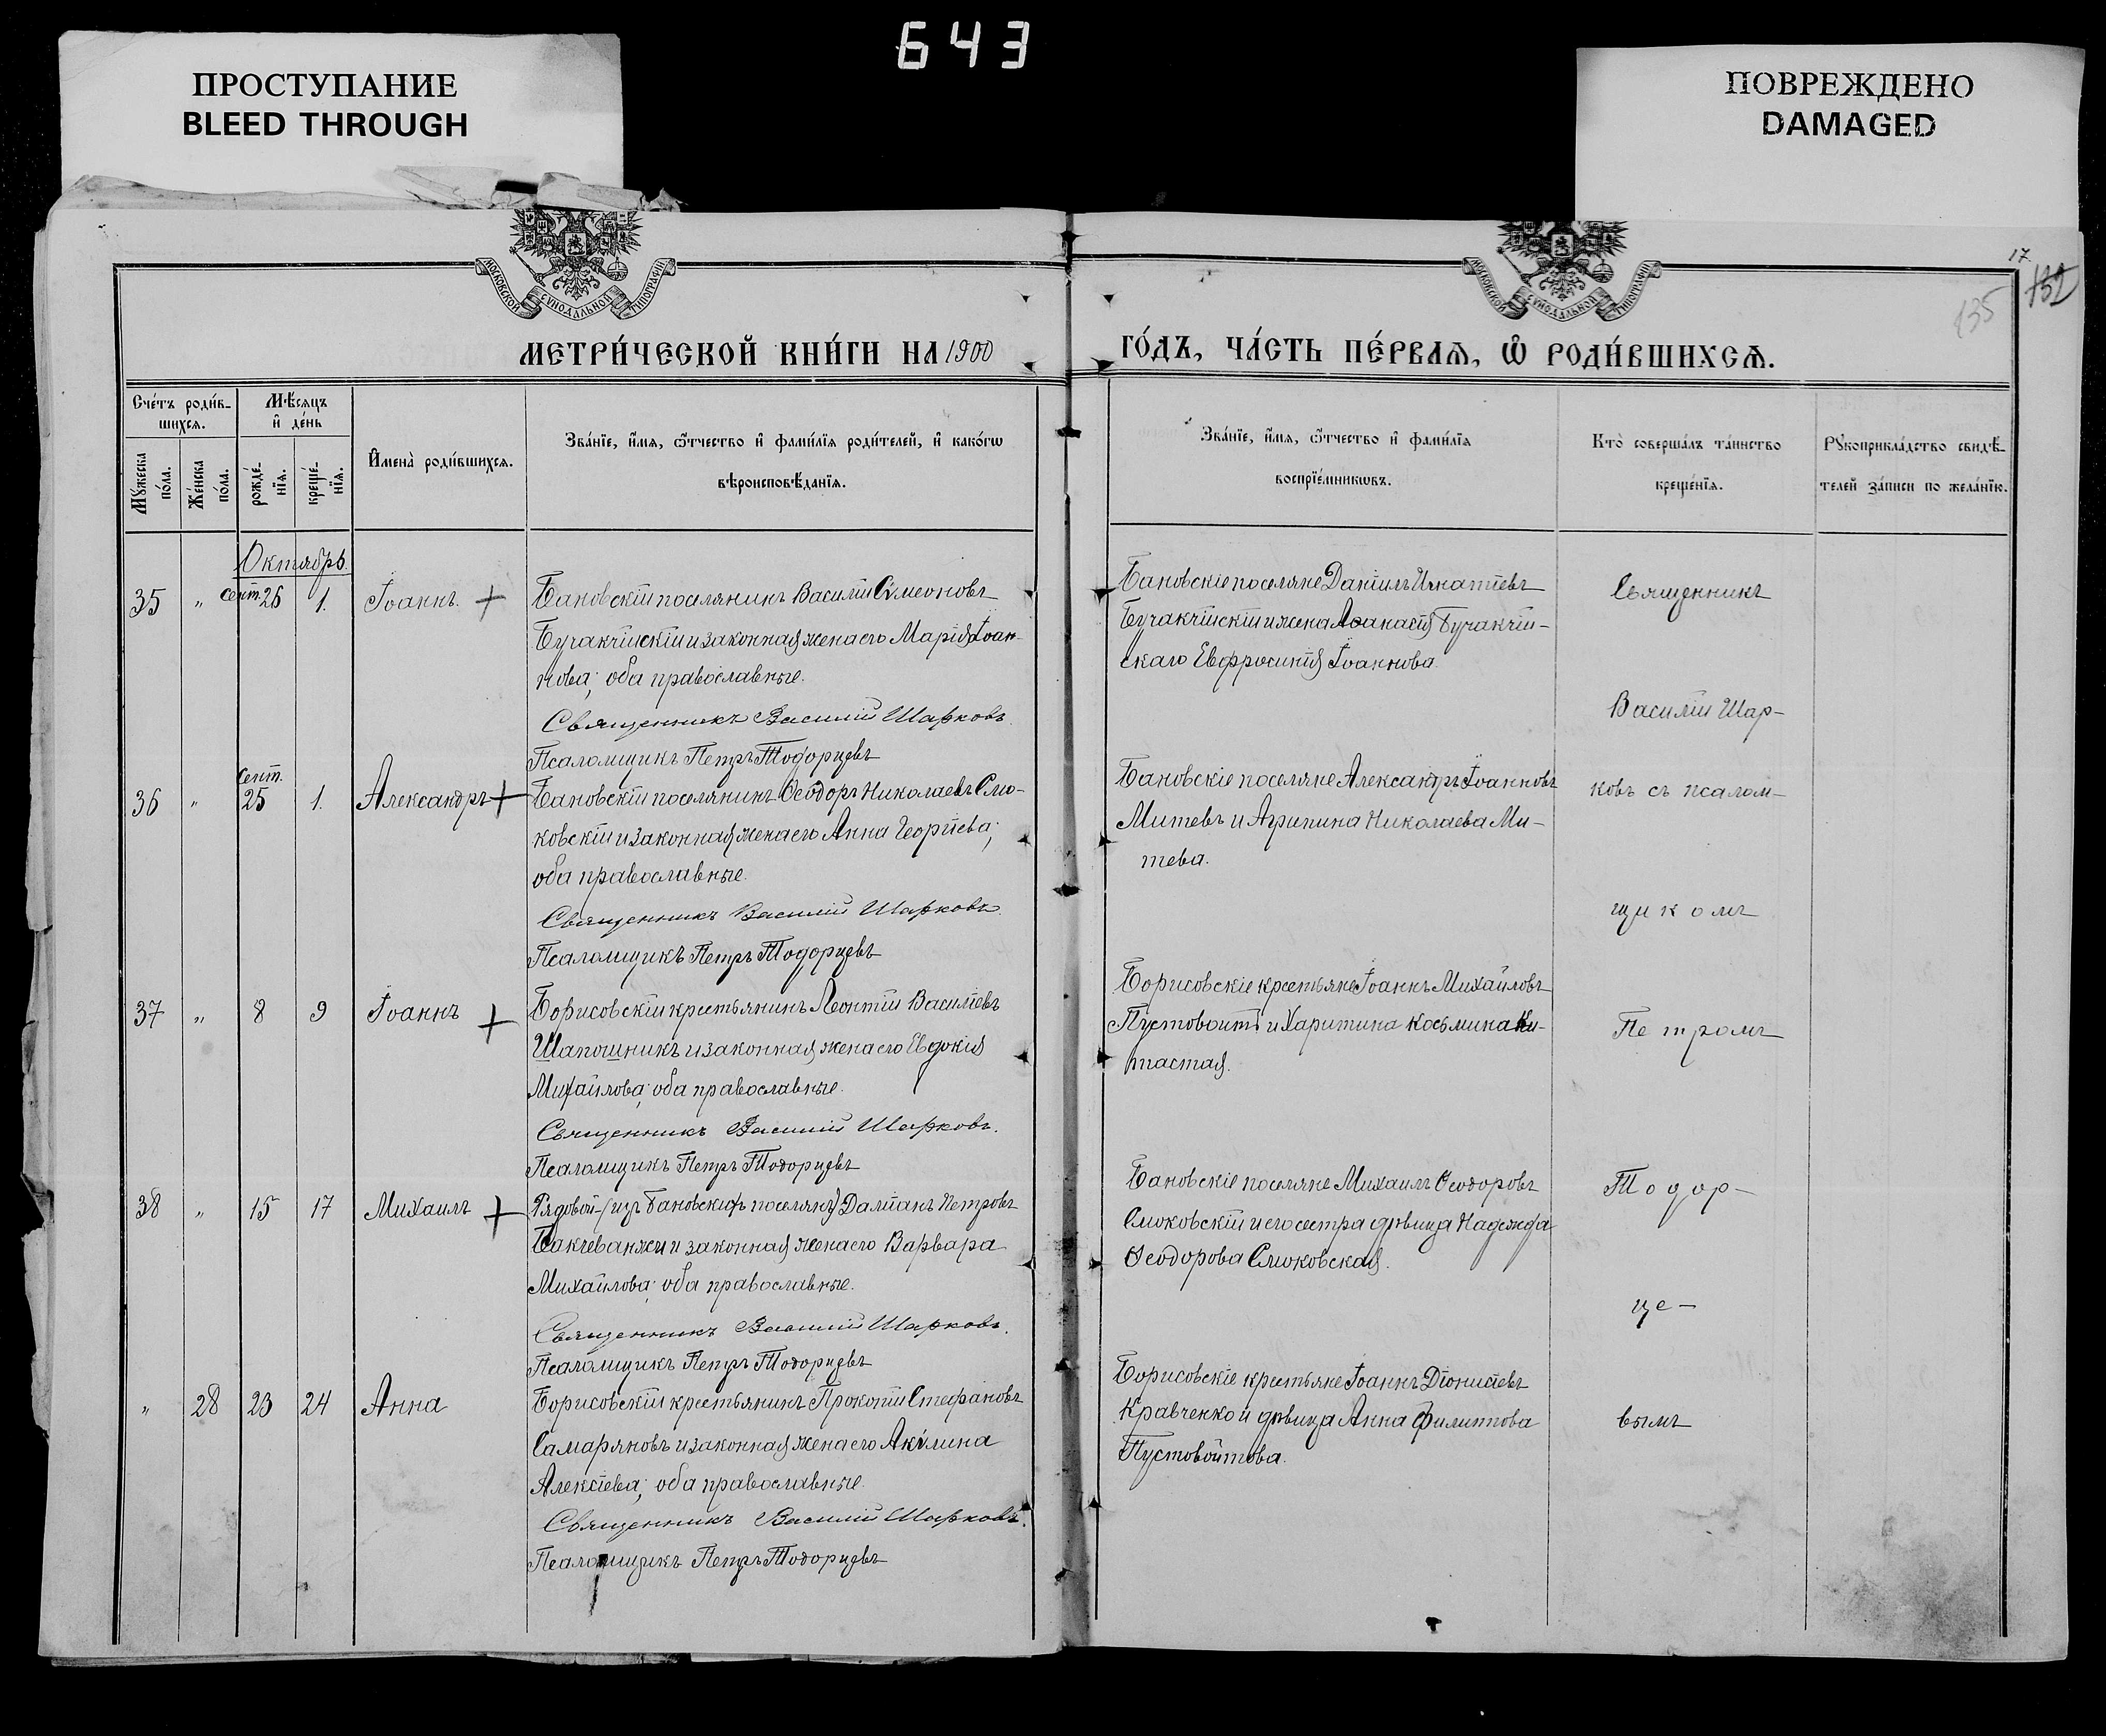 643
ПРОСТУПАНИЕ
BLEED THROUGH
ПОВРЕЖДЕНО
DAMAGED
МОСКОВСКОЙ СѴНОДАЛЬНОЙ ТИПОГРАФІИ
МОСКОВСКОЙ СѴНОДАЛЬНОЙ ТИПОГРАФІИ
17
132
135
МЕТРИ́ЧЕСКОЙ КНИ́ГИ НА 1900
ГО́ДЪ, ЧА́СТЬ ПЕ́РВАѦ, Ѡ РОДИ́ВШИХСѦ.
Сче́тъ роди́в-
шихсѧ.
Мѣ́сѧцъ
и де́нь
Мꙋ́жеска
по́ла.
Же́нска
по́ла.
рожде́-
нїѧ.
креще́-
нїѧ.
Имена̀ роди́вшихсѧ.
Зва́нїе, и́мѧ, ѻ́тчество и фами́лїѧ роди́телей, и како́гѡ
вѣроисповѣ́данїѧ.
Зва́нїе, и́мѧ, ѻ́тчество и фами́лїѧ
воспрїе́мникѡвъ.
Кто̀ соверша́лъ та́инство
креще́нїѧ.
Рꙋкоприкла́дство свидѣ́-
телей за́писи по жела́нїю.
Октябрь.
35 „ Сент. 26 1. Іоаннъ. +
Бановскій поселянинъ Василій Сѵмеоновъ
Бугакчійскій и законная жена его Марія Іоан-
нова; оба православные.
Священникъ Василій Шарковъ.
Псаломщикъ Петръ Тодорцевъ
Бановскіе поселяне Даніилъ Игнатіевъ
Бугакчійскій и жена Аѳанасія Бугакчій-
скаго Евфросинія Іоаннова.
36 „ Сент. 25 1. Александръ +
Бановскій поселянинъ Ѳеодоръ Николаевъ Смо-
ковскій и законная жена его Анна Георгіева;
оба православные.
Священникъ Василій Шарковъ.
Псаломщикъ Петръ Тодорцевъ
Бановскіе поселяне Александръ Іоанновъ
Митевъ и Агрипина Николаева Ми-
тева.
37 „ 8 9 Іоаннъ +
Борисовскій крестьянинъ Леонтій Василіевъ
Шапошникъ и законная жена его Евдокія
Михайлова; оба православные.
Священникъ Василій Шарковъ.
Псаломщикъ Петръ Тодорцевъ
Борисовскіе крестьяне Іоаннъ Михайловъ
Пустовоитъ и Харитина Косьмина Ки-
тастая.
38 „ 15 17 Михаилъ +
Рядовой (изъ Бановскихъ поселянъ) Даміанъ Петровъ
Бакчеванжи и законная жена его Варвара
Михайлова; оба православные.
Священникъ Василій Шарковъ.
Псаломщикъ Петръ Тодорцевъ
Бановскіе поселяне Михаилъ Ѳеодоровъ
Смоковскій и его сестра дѣвица Надежда
Ѳеодорова Смоковская.
„ 28 23 24 Анна
Борисовскій крестьянинъ Прокопій Стефановъ
Самаряновъ и законная жена его Акѵлина
Алексіева; оба православные.
Священникъ Василій Шарковъ.
Псаломщикъ Петръ Тодорцевъ
Борисовскіе крестьяне Іоаннъ Діонисіевъ
Кравченко и дѣвица Анна Филиппова
Пустовойтова.
Священникъ
Василій Шар-
ковъ съ псалом-
щикомъ
Петромъ
Тодор-
це-
вымъ